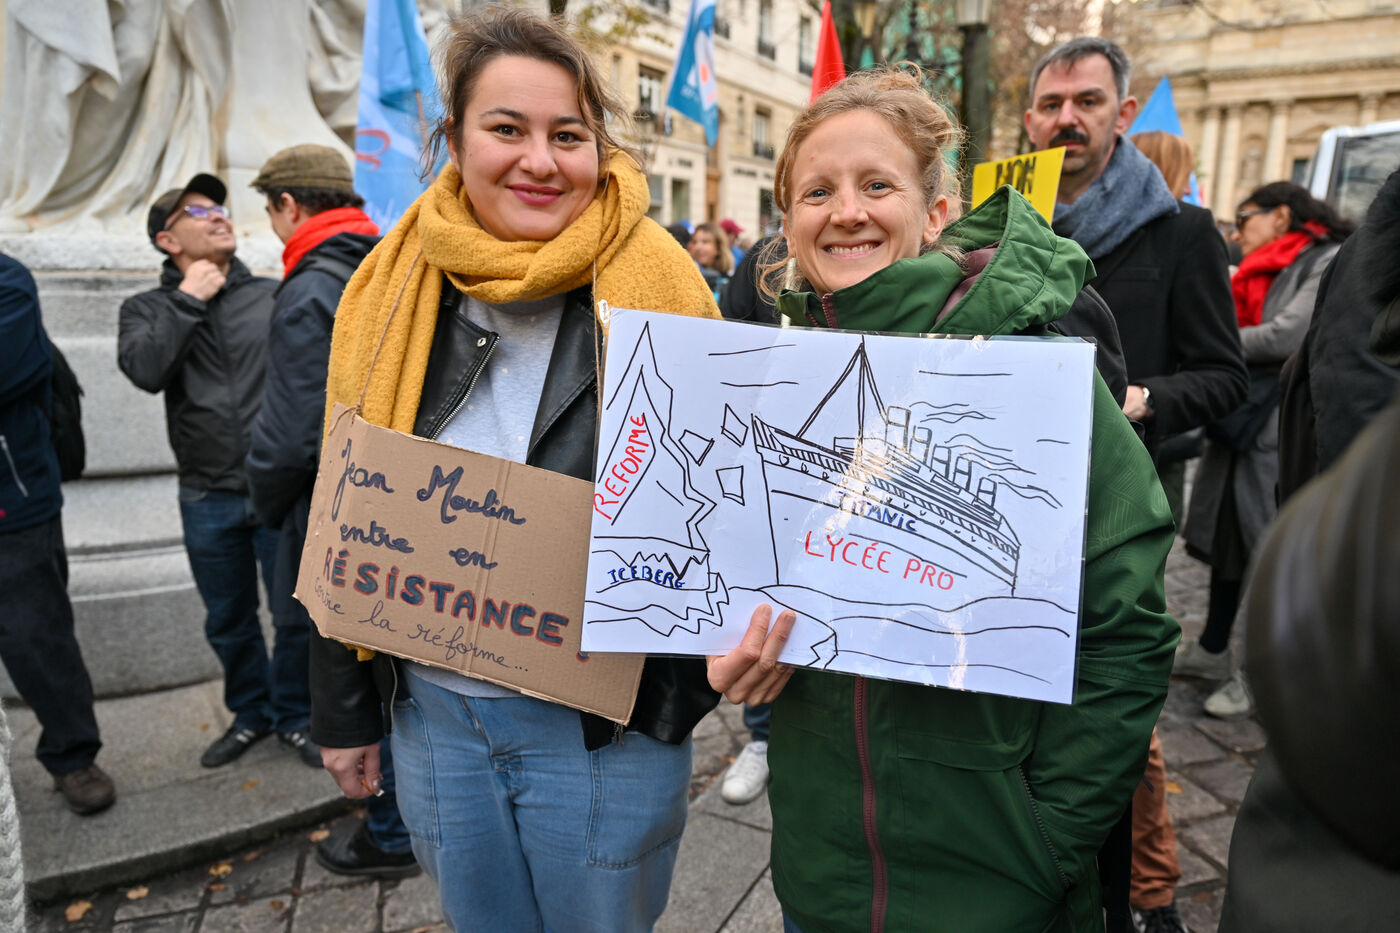 Jean Moulin
entre en
RÉSISTANCE !
contre la réforme...
REFORME
ICEBERG
TITANIC
LYCÉE PRO
NON